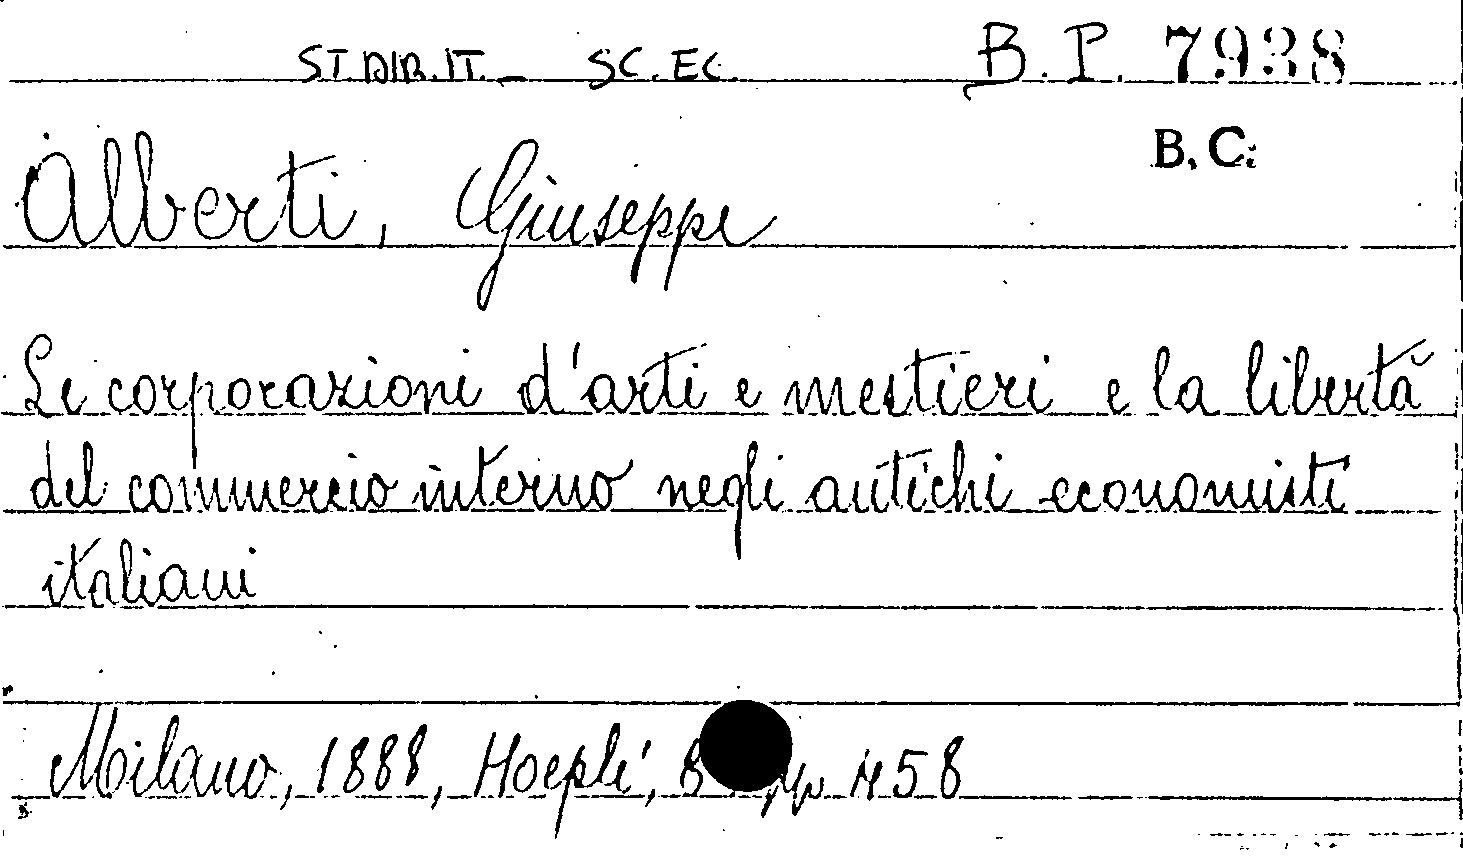 ST. DIR. IT. - SC. EC. B. P. 7938
B. C.
Alberti, Giuseppe
Le corporazioni d'arti e mestieri e la libertà
del commercio interno negli antichi economisti
italiani
Milano, 1888, Hoepli, 8 pp. 458